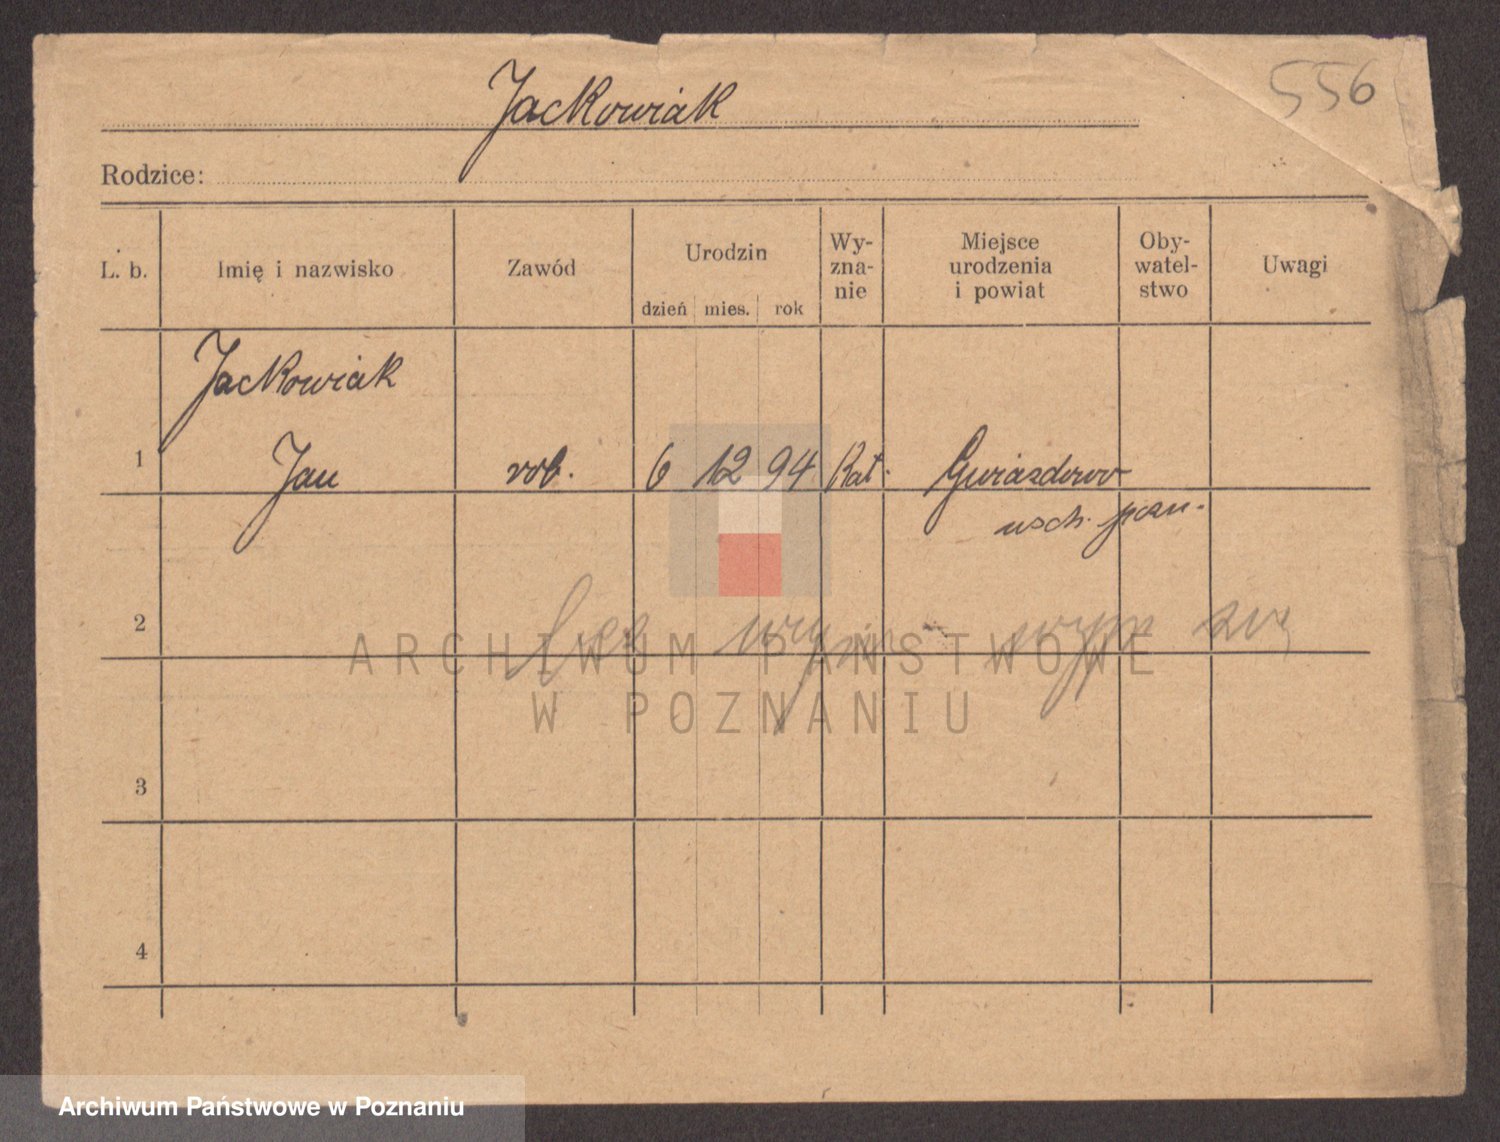 Jackowiak
556
Rodzice:
L. b. Imię i nazwisko Zawód Urodzin dzień mies. rok Wy-zna-nie Miejsce urodzenia i powiat Oby-watel-stwo Uwagi
Jackowiak
1 Jan rob. 6 12 94 Kat. Gwiazdowo
wsch. pozn.
2 bez
3
4
ARCHIWUM PAŃSTWOWE
W POZNANIU
Archiwum Państwowe w Poznaniu